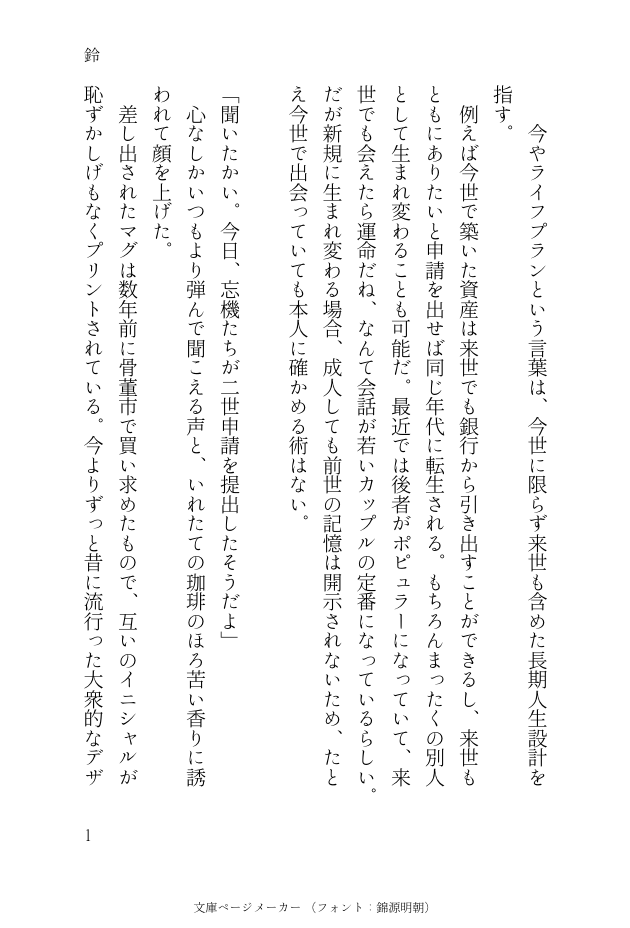 鈴
　今やライフプランという言葉は、今世に限らず来世も含めた長期人生設計を
指す。
　例えば今世で築いた資産は来世でも銀行から引き出すことができるし、来世も
ともにありたいと申請を出せば同じ年代に転生される。もちろんまったくの別人
として生まれ変わることも可能だ。最近では後者がポピュラーになっていて、来
世でも会えたら運命だね、なんて会話が若いカップルの定番になっているらしい。
だが新規に生まれ変わる場合、成人しても前世の記憶は開示されないため、たと
え今世で出会っていても本人に確かめる術はない。
「聞いたかい。今日、忘機たちが二世申請を提出したそうだよ」
　心なしかいつもより弾んで聞こえる声と、いれたての珈琲のほろ苦い香りに誘
われて顔を上げた。
　差し出されたマグは数年前に骨董市で買い求めたもので、互いのイニシャルが
恥ずかしげもなくプリントされている。今よりずっと昔に流行った大衆的なデザ
1
文庫ページメーカー（フォント：錦源明朝）